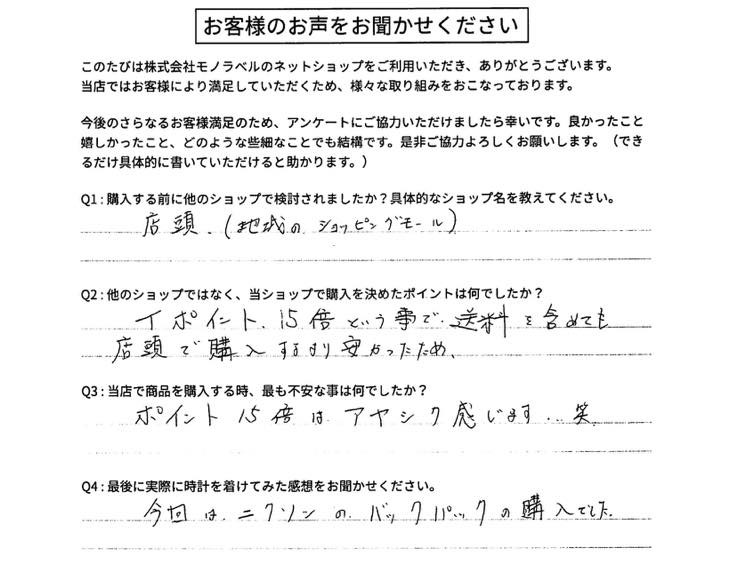 お客様のお声をお聞かせください
このたびは株式会社モノラベルのネットショップをご利用いただき、ありがとうございます。
当店ではお客様により満足していただくため、様々な取り組みをおこなっております。
今後のさらなるお客様満足のため、アンケートにご協力いただけましたら幸いです。良かったこと
嬉しかったこと、どのような些細なことでも結構です。是非ご協力よろしくお願いします。（でき
るだけ具体的に書いていただけると助かります。）
Q1：購入する前に他のショップで検討されましたか？具体的なショップ名を教えてください。
店頭．（地域の ショッピングモール）
Q2：他のショップではなく、当ショップで購入を決めたポイントは何でしたか？
ポイント、15倍という事で、送料を含めても
店頭で購入するより安かったため、
Q3：当店で商品を購入する時、最も不安な事は何でしたか？
ポイント 15倍は アヤシク感じます…笑
Q4：最後に実際に時計を着けてみた感想をお聞かせください。
今回は、ニクソンの バックパックの購入でした。